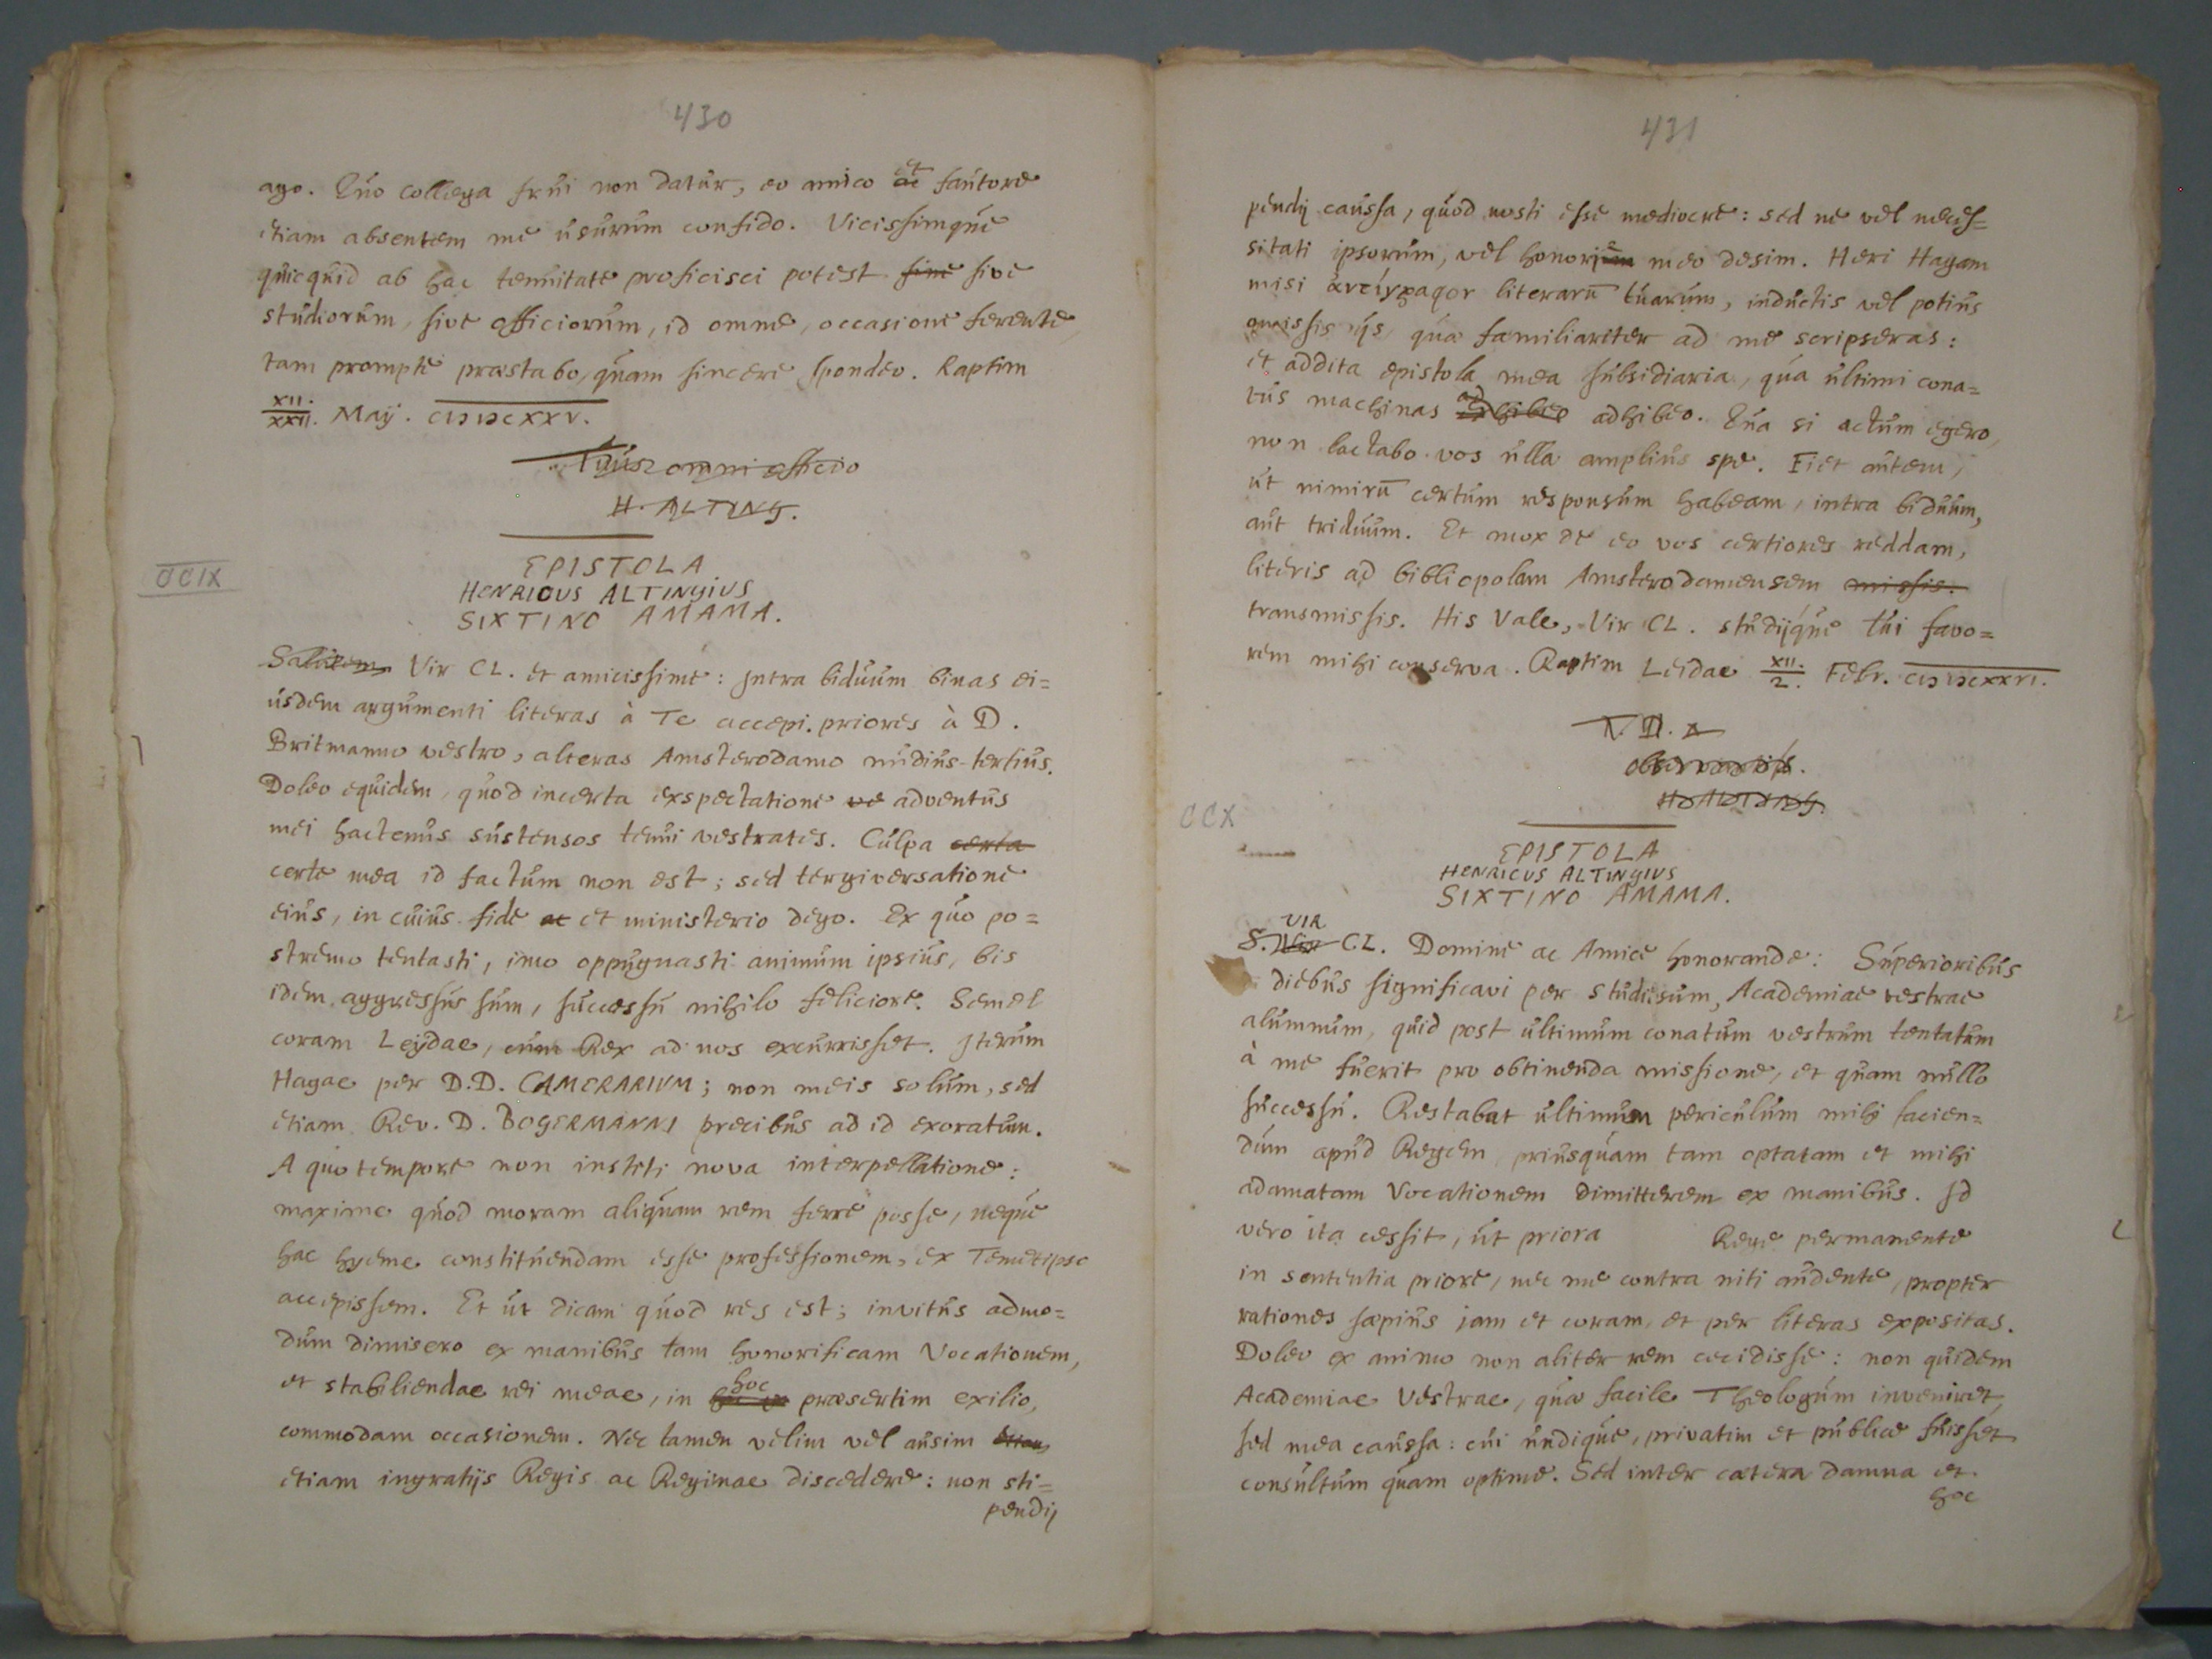 430
ago. Quo collega frui non datur, eo amico ac et fautore
etiam absentem me usurum confido. Vicissimque
quicquid ab hac tenuitate proficisci potest sine sive
studiorum, sive officiorum, id omne, occasione ferente,
tam prompte praestabo, quam sincere spondeo. Raptim
XII./XXII. Maij. CIƆIƆCXXV.
Tuus omni officio
H. ALTING.
CCIX
EPISTOLA
HENRICUS ALTINGIUS
SIXTINO AMAMA.
Salutem Vir CL. et amicissime: Intra biduum binas ei=
usdem argumenti literas à Te accepi. priores à D.
Britmanno vestro, alteras Amsterodamo nudius-tertius.
Doleo equidem, quod incerta exspectatione ve adventus
mei hactenus suspensos tenui vestrates. Culpa certa
certe mea id factum non est; sed tergiversatione
eius, in cuius fide ac et ministerio dego. Ex quo po=
stremo tentasti, imo oppugnasti animum ipsius, bis
idem aggressus sum, successu nihilo feliciore. Semel
coram Leydae, cum Rex ad nos excurrisset. Iterum
Hagae per D.D. CAMERARIUM; non meis solum, sed
etiam Rev. D. BOGERMANNI precibus ad id exoratum.
A quo tempore non institi nova interpellatione:
maxime quod moram aliquam rem ferre posse, neque
hac hyeme constituendam esse professionem, ex Temetipso
accepissem. Et ut dicam quod res est; invitus admo=
dum dimisero ex manibus tam honorificam Vocationem,
et stabiliendae rei meae, in hoc praesertim exilio,
commodam occasionem. Nec tamen velim vel ausim etiam
etiam ingratijs Regis ac Reginae discedere: non sti=
pendij
431
pendij caussa, quod nosti esse mediocre: sed ne vel neces=
sitati ipsorum, vel honori meo desim. Heri Hagam
misi ἀντίγραφον literarū tuarum, inductis vel potius
omissis ijs, quae familiariter ad me scripseras:
et addita epistola mea subsidiaria, qua ultimi cona=
tus machinas adhibeo. Qua si actum egero,
non lactabo vos ulla amplius spe. Fiet autem,
ut nimirū certum responsum habeam, intra biduum,
aut triduum. Et mox de eo vos certiores reddam,
literis ad bibliopolam Amsterodamensem missis.
transmissis. His Vale, Vir CL. studijque tui favo=
rem mihi conserva. Raptim Leidae XII./2. Febr. CIƆIƆCXXVI.
T. D. A
observantiss.
H. ALTING.
CCX
EPISTOLA
HENRICUS ALTINGIUS
SIXTINO AMAMA.
S. Vir VIR CL. Domine ac Amice honorande: Superioribus
diebus significavi per studiosum, Academiae vestrae
alumnum, quid post ultimum conatum vestrum tentatum
à me fuerit pro obtinenda missione, et quam nullo
successu. Restabat ultimum periculum mihi facien=
dum apud Regem, priusquam tam optatam et mihi
adamatam Vocationem dimitterem ex manibus. Id
vero ita cessit, ut priora Rege permanente
in sententia priore, nec me contra niti audente, propter
rationes saepius jam et coram, et per literas expositas.
Doleo ex animo non aliter rem cecidisse: non quidem
Academiae Vestrae, quae facile Theologum inveniret,
sed mea caussa: cui undique, privatim et publice fuisset
consultum quam optime. Sed inter caetera damna et
hoc